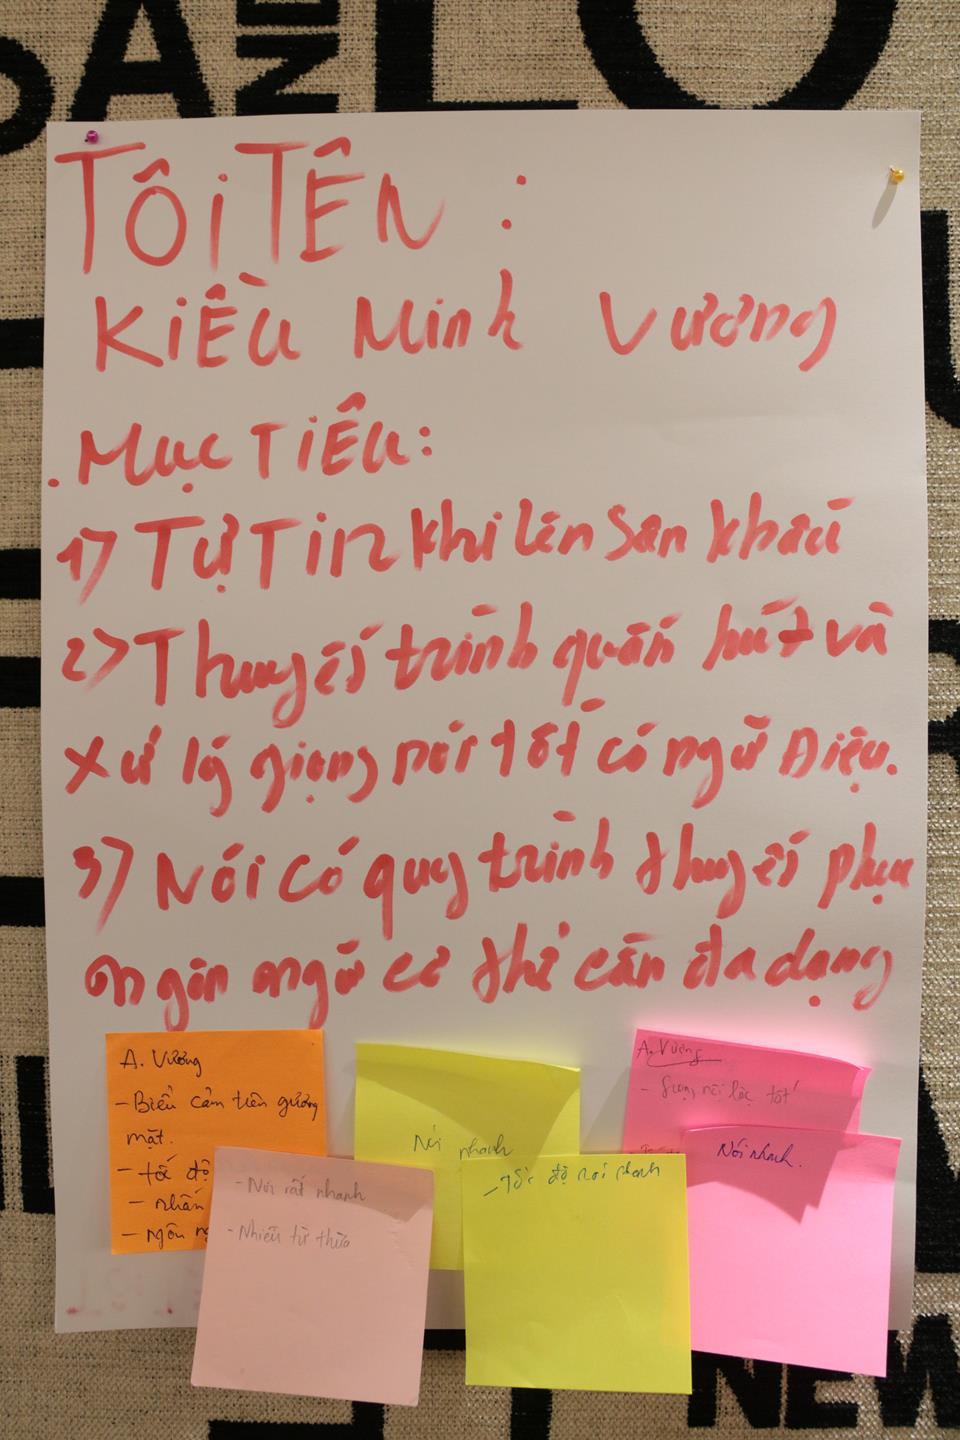 TÔI TÊN :
KIỀU Minh Vương
. MỤC TIÊU:
1) TỰ TIN khi lên sân khấu
2) Thuyết trình quấn hút và
xử lý giọng nói tốt có ngữ điệu.
3) Nói có quy trình thuyết phục
ngôn ngữ cơ thể cần đa dạng
A. Vương
- Biểu cảm trên gương
mặt.
- tốc độ
- nhấn
- ngôn ng
Nói nhanh
A. Vương
- Giọng nội lực tốt
- Nói rất nhanh
- Nhiều từ thừa
- Tốc độ nói nhanh
Nói nhanh.
SAN
LO
NEW